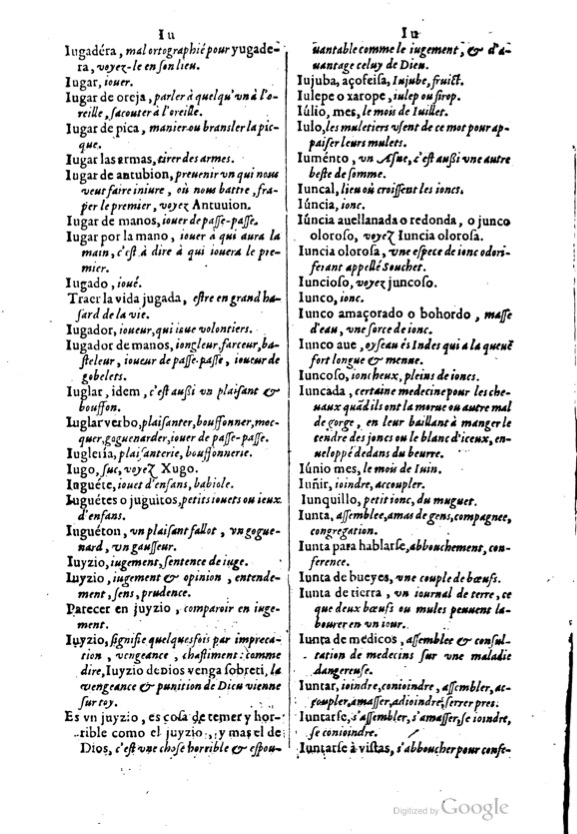 Iu
Iugadéra, mal ortographié pour yugade-
ra, voyez-le en son lieu.
Iugar, iouer.
Iugar de oreja, parler à quelqu'vn à l'o-
reille, sacouter à l'oreille.
Iugar de pica, manier ou bransler la pic-
que.
Iugar las armas, tirer des armes.
Iugar de antubion, preuenir vn qui nous
veut faire iniure, où nous battre, fra-
per le premier, voyez Antuuion.
Iugar de manos, iouer de passe-passe.
Iugar por la mano, iouer à qui aura la
main, c'est à dire à qui iouera le pre-
mier.
Iugado, ioué.
Traer la vida jugada, estre en grand ha-
sard de la vie.
Iugador, ioueur, qui ioue volontiers.
Iugador de manos, iongleur, farceur, ba-
steleur, ioueur de passe-passe, ioueur de
gobelets.
Iuglar, idem, c'est außi vn plaisant &
bouffon.
Iuglar verbo, plaisanter, bouffonner, moc-
quer, goguenarder, iouer de passe-passe.
Iugleria, plaisanterie, bouffonnerie.
Iugo, suc, voyez Xugo.
Iuguéte, iouet d'enfans, babiole.
Iuguétes o juguitos, petits iouets ou ieux
d'enfans.
Iuguéton, vn plaisant fallot, vn gogue-
nard, vn gausseur.
Iuyzio, iugement, sentence de iuge.
Iuyzio, iugement & opinion, entende-
ment, sens, prudence.
Parecer en juyzio, comparoir en iuge-
ment.
Iuyzio, signifie quelquesfois par impreca-
tion, vengeance, chastiment: comme
dire, Iuyzio de Dios venga sobre ti, la
vengeance & punition de Dieu vienne
sur toy.
Es vn juyzio, es cosa de temer y hor-
rible como el juyzio, y mas el de
Dios, c'est vne chose horrible & espou-
Iu
uantable comme le iugement, & d'a-
uantage celuy de Dieu.
Iujuba, açofeifa, Iujube, fruict.
Iulepe o xarope, iulep ou sirop.
Iúlio, mes, le mois de Iuillet.
Iulo, les muletiers vsent de ce mot pour ap-
paiser leurs mulets.
Iuménto, vn Asne, c'est außi vne autre
beste de somme.
Iuncal, lieu où croissent les ioncs.
Iúncia, ionc.
Iúncia auellanada o redonda, o junco
oloroso, voyez Iuncia olorosa.
Iuncia olorosa, vne espece de ionc odori-
ferant appellé Souchet.
Iuncioso, voyez juncoso.
Iunco, ionc.
Iunco amaçorado o bohordo, masse
d'eau, vne sorce de ionc.
Iunco aue, oyseau és Indes qui a la queuë
fort longue & menue.
Iuncoso, ioncheux, pleins de ioncs.
Iuncada, certaine medecine pour les che-
uaux quãd ils ont la morue ou autre mal
de gorge, en leur baillant à manger le
tendre des joncs ou le blanc d'iceux, en-
ueloppé dedans du beurre.
Iúnio mes, le mois de Iuin.
Iuñir, ioindre, accoupler.
Iunquillo, petit ionc, du muguet.
Iunta, assemblee, amas de gens, compagnee,
congregation.
Iunta para hablarse, abbouchement, con-
ference.
Iunta de bueyes, vne couple de bœufs.
Iunta de tierra, vn journal de terre, ce
que deux bœufs ou mules peuuent la-
bourer en vn iour.
Iunta de médicos, assemblee & consul-
tation de medecins sur vne maladie
dangereuse.
Iuntar, ioindre, conioindre, assembler, ac-
coupler, amasser, adioindre, serrer pres.
Iuntarse, s'assembler, s'amasser, se ioindre,
se conioindre.
Iuntarse à vistas, s'aboucher pour confe-
Digitized by Google